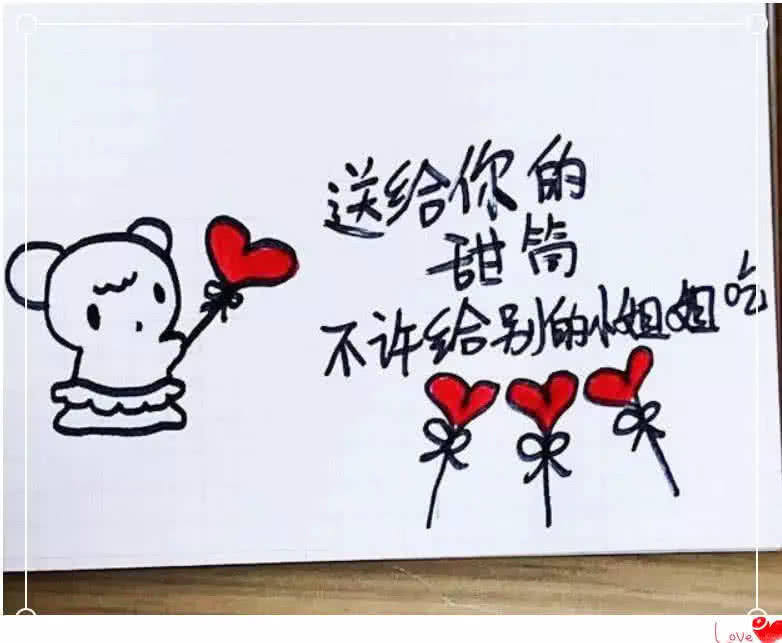 送给你的
甜筒
不许给别的小姐姐吃
Love